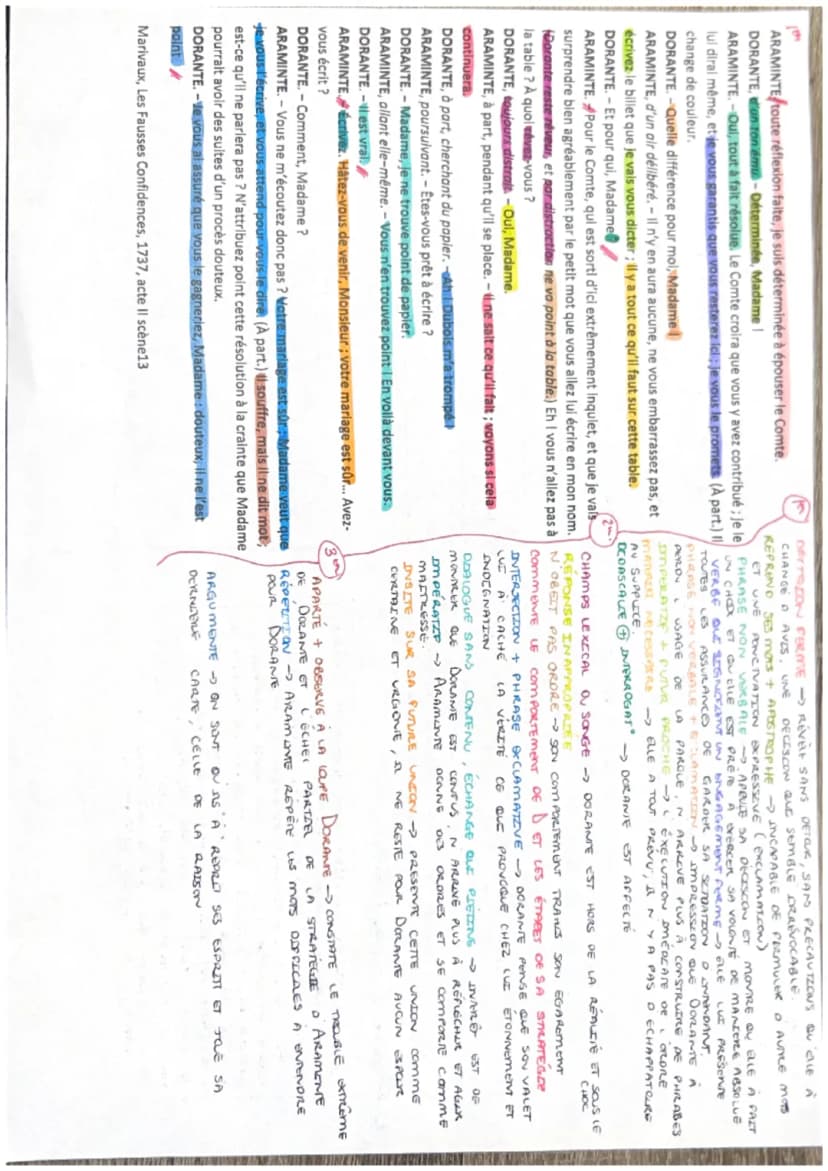 1er
ARAMINTE, toute réflexion faite, je suis déterminée à épouser le Comte.
DORANTE, d'un ton ému. – Déterminée, Madame !
ARAMINTE. – Oui, tout à fait résolue. Le Comte croira que vous y avez contribué ; je le
lui dirai même, et je vous garantis que vous resterez ici ; je vous le promets. (À part.) Il
change de couleur.
DORANTE. – Quelle différence pour moi, Madame !
ARAMINTE, d'un air délibéré. – Il n'y en aura aucune, ne vous embarrassez pas, et
écrivez le billet que je vais vous dicter ; il y a tout ce qu'il faut sur cette table.
DORANTE. – Et pour qui, Madame ?
ARAMINTE. – Pour le Comte, qui est sorti d'ici extrêmement inquiet, et que je vais
surprendre bien agréablement par le petit mot que vous allez lui écrire en mon nom.
(Dorante reste rêveur, et par distraction ne va point à la table.) Eh ! vous n'allez pas à
la table ? À quoi rêvez-vous ?
DORANTE, toujours distrait. – Oui, Madame.
ARAMINTE, à part, pendant qu'il se place. – Il ne sait ce qu'il fait ; voyons si cela
continuera.
DORANTE, à part, cherchant du papier. – Ah ! Dubois m'a trompé !
ARAMINTE, poursuivant. – Êtes-vous prêt à écrire ?
DORANTE. – Madame, je ne trouve point de papier.
ARAMINTE, allant elle-même. – Vous n'en trouvez point ! En voilà devant vous.
DORANTE. – Il est vrai.
ARAMINTE. – Écrivez. Hâtez-vous de venir, Monsieur ; votre mariage est sûr... Avez-
vous écrit ?
DORANTE. – Comment, Madame ?
ARAMINTE. – Vous ne m'écoutez donc pas ? Votre mariage est sûr ; Madame veut que
je vous l'écrive, et vous attend pour vous le dire. (À part.) Il souffre, mais il ne dit mot ;
est-ce qu'il ne parlera pas ? N'attribuez point cette résolution à la crainte que Madame
pourrait avoir des suites d'un procès douteux.
DORANTE. – Je vous ai assuré que vous le gagneriez, Madame : douteux, il ne l'est
point.
Marivaux, Les Fausses Confidences, 1737, acte II scène13
1m
FERME → RÉVÈLE SANS DETOUR, SANS PRECAUTIONS QU'ELLE A
CHANGÉ D'AVIS, UNE DECISION QUE SEMBLE IRRÉVOCABLE.
REPREND SES MOTS + APOSTROPHE → INCAPABLE DE FORMULER D'AUTRE MOTS
ET UNE PONCTUATION EXPRESSIVE (EXCLAMATION)
PHRASE NON VERBALE → APPUIE SA DECISION ET MONTRE QU'ELLE A FAIT
UN CHOIX ET QU'ELLE EST PRETE A EXERCER SA VOLONTÉ DE MANIERE ABSOLUE
VERBE QUI SIGNIFIENT UN ENGAGEMENT FERME → ELLE LUI PRESENTE
TOUTES LES ASSURANCES DE GARDER SA SITUATION D'INTENDANT.
PHRASE NON VERBALE + EXCLAMATION → IMPRESSION QUE DORANTE A
PERDU L'USAGE DE LA PAROLE, N'ARRIVE PLUS À CONSTRUIRE DE PHRASES
IMPERATIF + FUTUR PROCHE → L'ÉXECUTION IMÉDIATE DE L'ORDRE
MATERIEL NÉCESSAIRE → ELLE A TOUT PRÉVU, IL N'Y A PAS D'ECHAPPATOIRE
AU SUPPLICE.
DIDASCALIE + INTERROGAT° → DORANTE EST AFFECTÉ
2m
CHAMPS LEXICAL DU SONGE → DORANTE EST HORS DE LA RÉALITÉ ET SOUS LE
CHOC
RÉPONSE INAPPROPRIÉE
N'OBEIT PAS ORDRE → SON COMPORTEMENT TRAHIS SON ÉGAREMENT
COMMENTE LE COMPORTEMENT DE D ET LES ÉTAPES DE SA STRATÉGIE
INTERJECTION + PHRASE EXCLAMATIVE → DORANTE PENSE QUE SON VALET
LUI À CACHÉ LA VÉRITÉ CE QUE PROVOQUE CHEZ LUI ETONNEMENT ET
INDIGNATION
DIALOGUE SANS CONTENU, ÉCHANGE QUI PIÉTINE → INTERÊT EST DE
MONTRER QUE DORANTE EST CONFUS, N'ARRIVE PLUS À RÉFLÉCHIR ET AGIR
IMPÉRATIF → ARAMINTE DONNE DES ORDRES ET SE COMPORTE COMME
MAITRESSE.
INSISTE SUR SA FUTURE UNION → PRESENTE CETTE UNION COMME
CERTAINE ET URGENTE, IL NE RESTE POUR DORANTE AUCUN ESPOIR
3m
APARTÉ + OBSERVE À LA LOUPE DORANTE → CONSTATE LE TROUBLE EXTRÊME
DE DORANTE ET L'ÉCHEC PARTIEL DE LA STRATÉGIE D'ARAMINTE
RÉPÉTITION → ARAMINTE RÉPÈTE LES MOTS DIFFICILES À ENTENDRE
POUR DORANTE
ARGUMENTE → ON SENT QU'IL A REPRIT SES ESPRIT ET JOUE SA
DERNIÈRE CARTE, CELLE DE LA RAISON